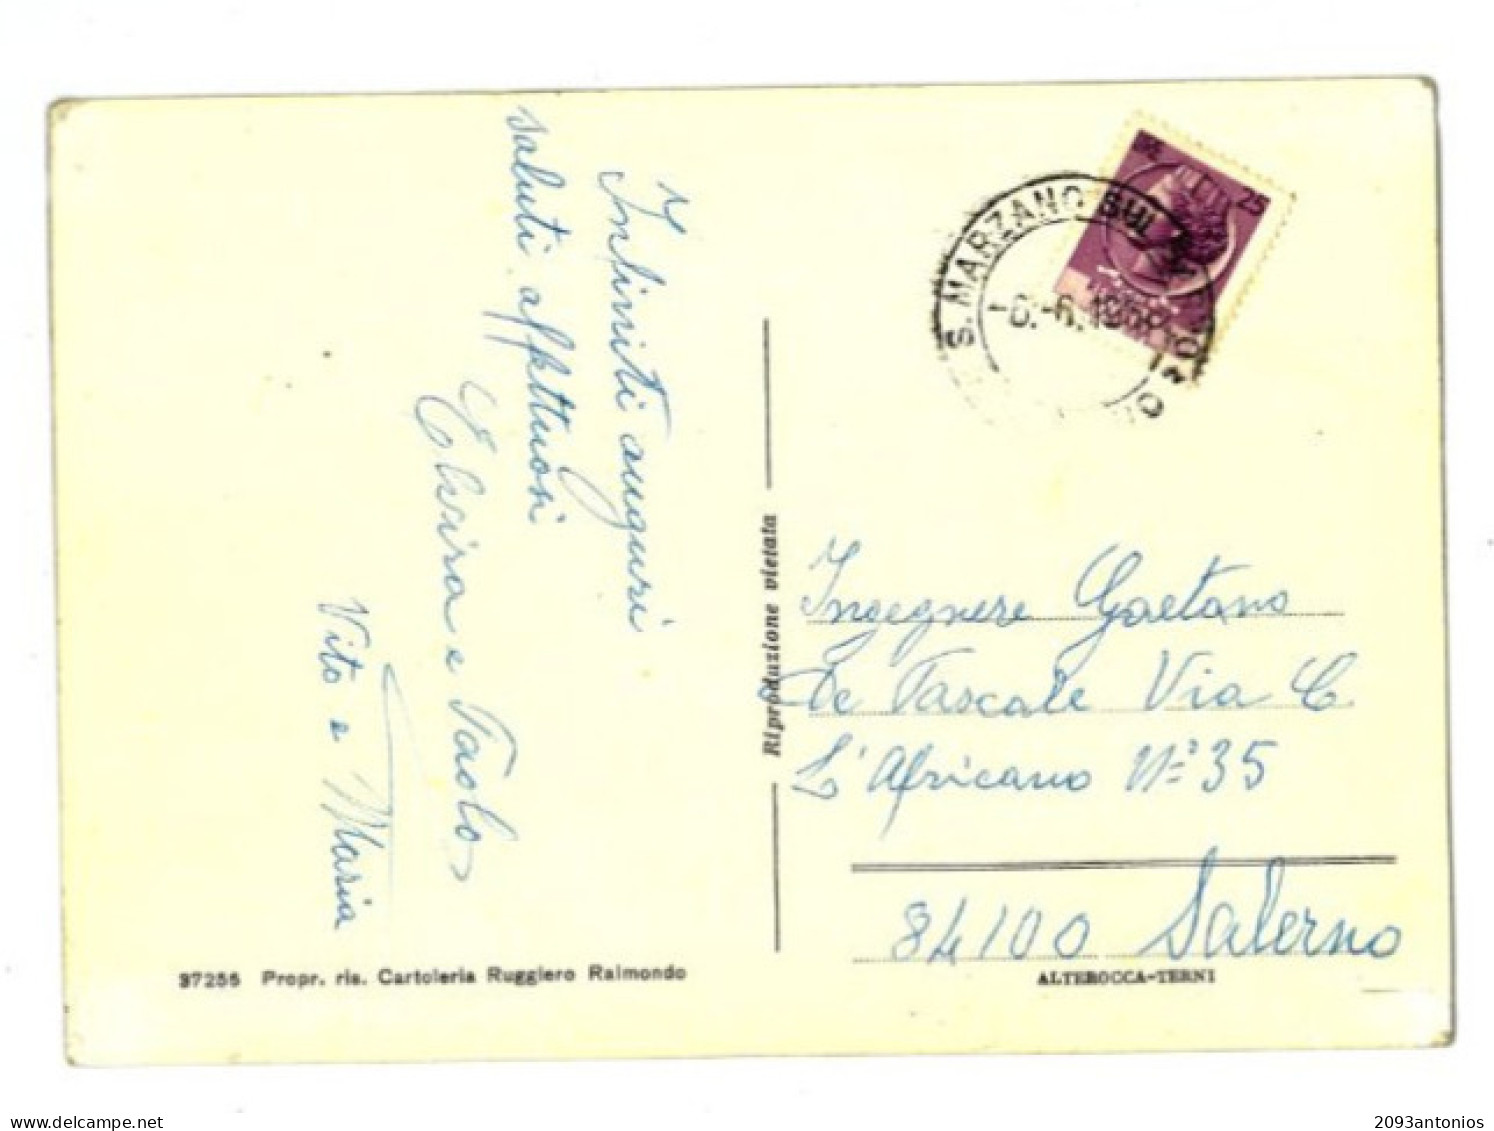 Infiniti auguri
saluti affettuosi
Elvira e Paolo
Vito e Maria
37255 Propr. ris. Cartoleria Ruggiero Raimondo
Riproduzione vietata
25
S. MARZANO SUL
-6.-6.19
Ingegnere Gaetano
De Pascale Via C.
L'Africano N° 35
84100 Salerno
ALTEROCCA-TERNI
2093antonios